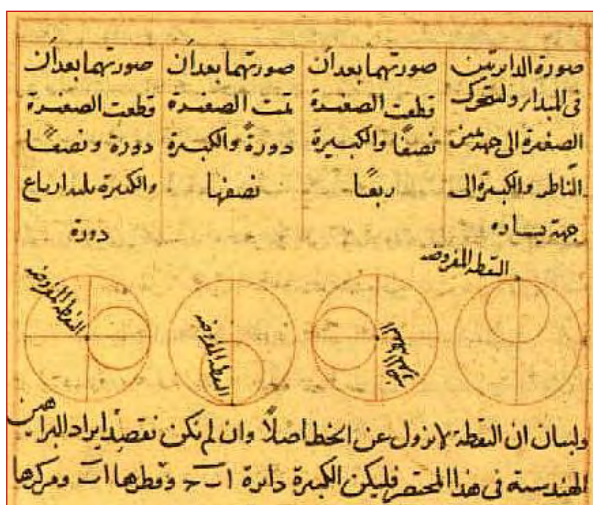 صورة الدايرتين
فى المبدا ولتتحرك
الصغيرة الى جهة يمين
الناظر والكبيرة الى
جهة يساره
صورتهما بعد ان
قطعت الصغيرة
نصفًا والكبيرة
ربعًا
صورتهما بعد ان
تمت الصغيرة
دورةً والكبيرة
نصفها
صورتهما بعد ان
قطعت الصغيرة
دورة ونصفًا
والكبيرة ثلثه ارباع
دورة
النقطة المفروضه
النقطة المفروضه
النقطة المفروضه
النقطة المفروضه
ولبيان ان النقطة لا تزول عن الخط اصلًا وان لم نكن نقصد ايراد البراهين
الهندسية فى هذا المختصر فليكن الكبيرة دايرة اب ح وقطرها اب ومركزها